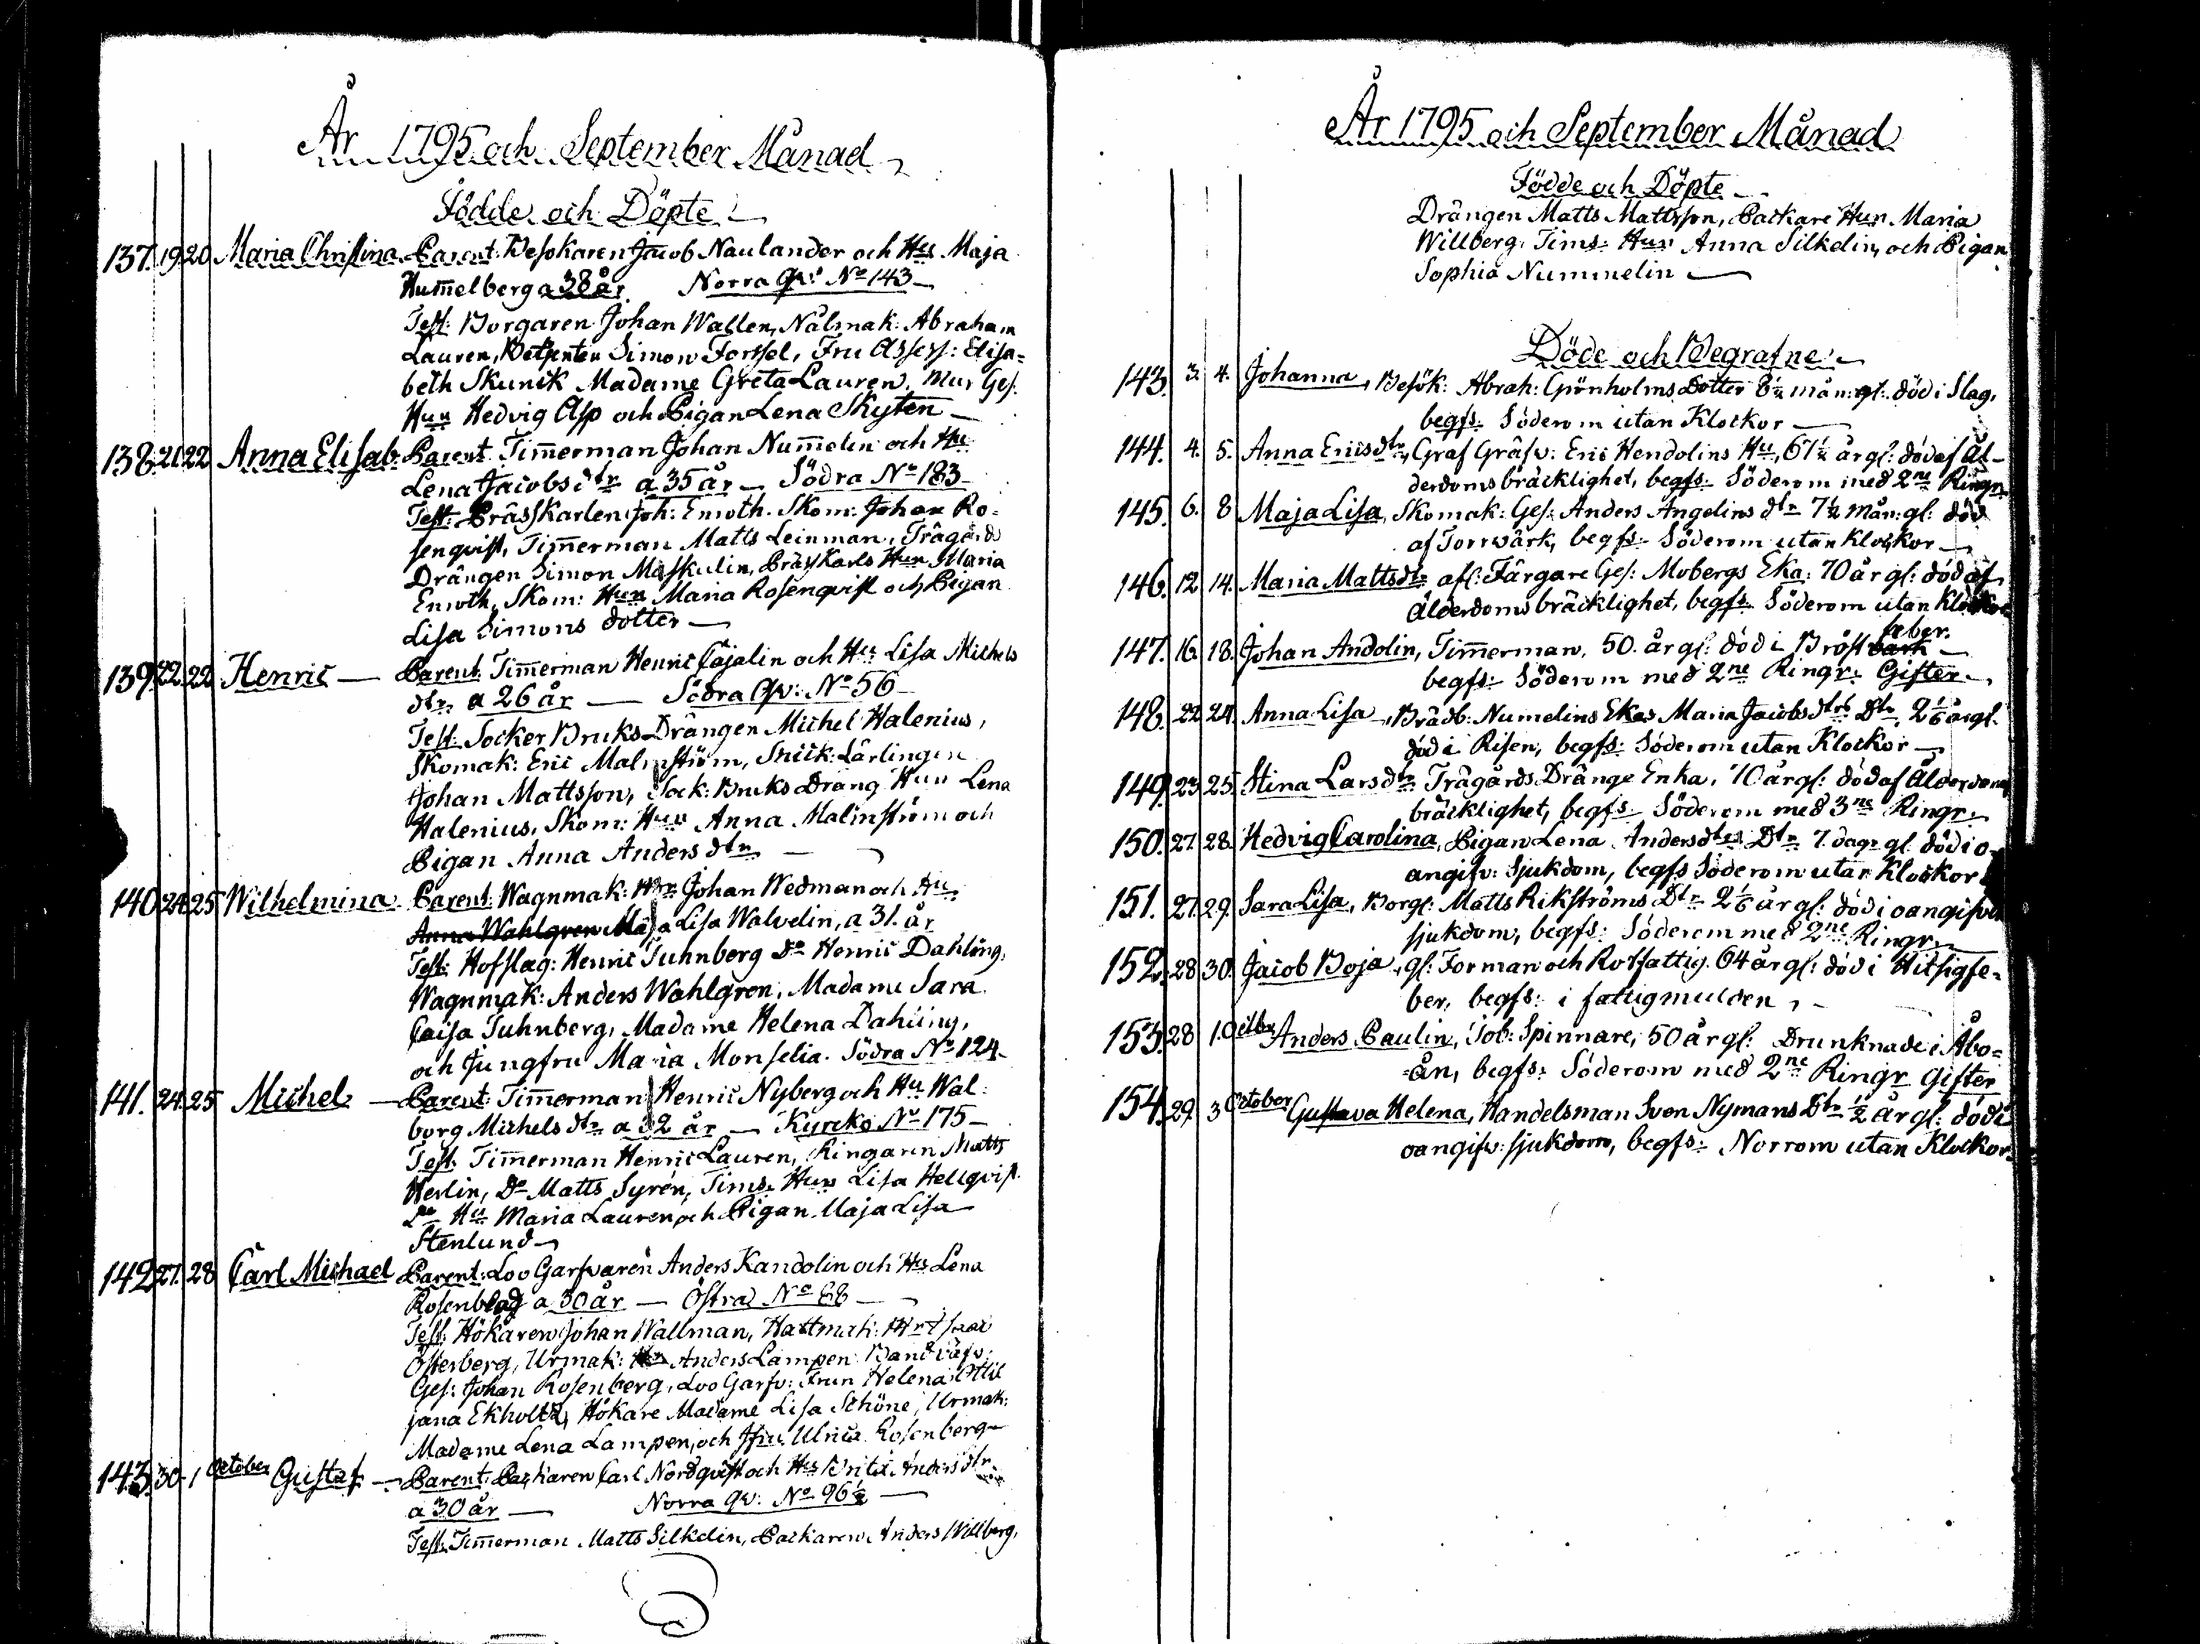 År 1795 och September Månad
Födde och Döpte
137. 19 20 Maria Christina Parent: Besökaren Jacob Naulander och Hus Maja
Hum̄elberg a 38 år. Norra Qv: No 143
Test: Borgaren Johan Wallen, Nålmak: Abraham
Lauren, Betjenten Simon Forssel, Fru Assess: Elisa=
beth Skunik Madame Greta Lauren, Mur Ges:
Hun Hedvig Asp och Pigan Lena Skyten
138. 21. 22 Anna Elisab. Parent Tim̄erman Johan Num̄elin och Hu
Lena Jacobs dtr a 35 år Södra No 183
Test: Prässkarlen Joh: Enroth. Skom: Johan Ro=
senqvist, Tim̄erman Matts Leinman, Trägårds
Drängen Simon Maskulin, Präs Karls Hun Maria
Enroth, Skom: Hun Maria Rosenqvist och Pigan
Lisa Simons dotter
139. 22. 22 Henric Parent Tim̄erman Henric Cajalin och Hus Lisa Michels
dtr a 26 år Södra Qv: No 56
Test: Socker Bruks Drängen Michel Halenius,
Skomak: Eric Malmström, Snick: Lärlingen
Johan Mattsson, Sock: Bruks Dräng Hun Lena
Halenius, Skom: Hun Anna Malmström och
Pigan Anna Anders dtr
140 24. 25 Wilhelmina Parent: Wagnmak: Hr Johan Wedman och Hu
Anna Wahlgren Maja Lisa Walvelin, a 31. år
Test: Hofslag: Henric Tuhnberg Do Henric Dahling,
Wagnmak: Anders Wahlgren, Madame Sara
Caisa Tuhnberg, Madame Helena Dahling,
och Jungfru Maria Monselia. Södra No 124
141. 24. 25 Michel Parent: Tim̄erman Henric Nyberg och Hu Wal=
borg Michels dtr a 32 år Kyrko No 175
Test. Tim̄erman Henric Lauren, Ringaren Matts
Herlin, Do Matts Syrén, Tims. Hun Lisa Hellqvist
Do Hu Maria Lauren och Pigan Maja Lisa
Stenlund
142 27. 28 Carl Michael Parent: Loo Garfvaren Anders Kandolin och Hus Lena
Rosenblad a 30 år Östra No 88
Test: Hökaren Johan Wallman, Hattmak: Hr Isaac
Österberg, Urmak: Hr Anders Lampen Bandväfv:
Ges: Johan Rosenberg, Loo Garfv: Frun Helena Ottil
jana Ekholtz, Hökare Madame Lisa Schöne, Urmak:
Madame Lena Lampen, och Jfru Ulrica Rosenberg
143. 30 1 October Gustaf Parent: Packaren Carl Nordqvist och Hus Brita Anders dtr
a 30 år Norra Qv: No 96½
Test: Tim̄erman Matts Silkelin, Packaren Anders Willberg,
År 1795 och September Månad
Födde och Döpte
Drängen Matts Mattsson, Packare Hun Maria
Willberg, Tims. Hun Anna Silkelin, och Pigan
Sophia Nummelin
Döde och Begrafne
143. 3. 4. Johanna, Besök: Abrah: Grönholms Dotter 8½ mån: gl: död i Slag,
begfs. Söderom utan Klockor
144. 4. 5. Anna Ericsdtr, Graf Gräfv: Eric Hendolins Hu, 61½ år gl: död af Ål=
derdoms bräcklighet, begfs. Söderom med 2ne Ringr
145. 6. 8 Maja Lisa, Skomak: Ges: Anders Angelins dtr 7½ Mån: gl: död
af Torrwärk, begfs: Söderom utan Klockor
146. 12 14. Maria Mattsdtr afl: Färgare Ges: Mobergs Eka: 70 år gl: död af
Ålderdoms bräcklighet, begfs Söderom utan Klockor
147. 16. 18. Johan Andolin, Tim̄erman, 50. år gl: död i Bröst feber.
begfs: Söderom med 2ne Ringr: Gifter
148. 22 24 Anna Lisa, Brädb: Numelins Ekas Maria Jacobsdtrs Dtr 2⅙ år gl.
död i Risen, begfs: Söderom utan Klockor
149. 23 25 Stina Larsdtr Trägårds Dränge Enka, 70 år gl: död af Ålderdoms
bräcklighet, begfs. Söderom med 3ne Ringr.
150. 27. 28. Hedvig Carolina, Pigan Lena Andersdtrs Dtr 7. dagr gl död i o=
angifv: Sjukdom, begfs Söderom utan Klockor
151. 27. 29. Sara Lisa, Borgl: Matts Rikströms Dtr 2⅙ år gl: död i oangifven
sjukdom, begfs: Söderom med 2ne Ringr.
152. 28 30. Jacob Boja, gl: Forman och Rotfattig. 64 år gl: död i Hitsigfe=
ber, begfs: i fattigmulden
153. 28 1. Octbr Anders Paulin, Tob: Spinnare, 50 år gl: Drunknade i Åbo=
=ån, begfs: Söderom med 2ne Ringr Gifter
154. 29. 3 October Gustava Helena, Handelsman Sven Nymans Dtr ½ år gl: död i
oangifv: sjukdom, begfs: Norrom utan Klockor